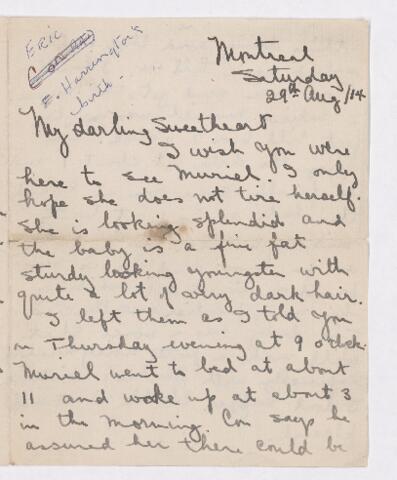 ERIC
E. Harrington's
birth.
Montreal
Saturday
29th Aug/14
My darling Sweetheart
I wish you were
here to see Muriel. I only
hope she does not tire herself.
She is looking splendid and
the baby is a fine fat
sturdy looking youngster with
quite a lot of very dark hair.
I left them as I told you
on Thursday evening at 9 o'clock.
Muriel went to bed at about
11 and woke up at about 3
in the morning. Con says he
assured her there could be